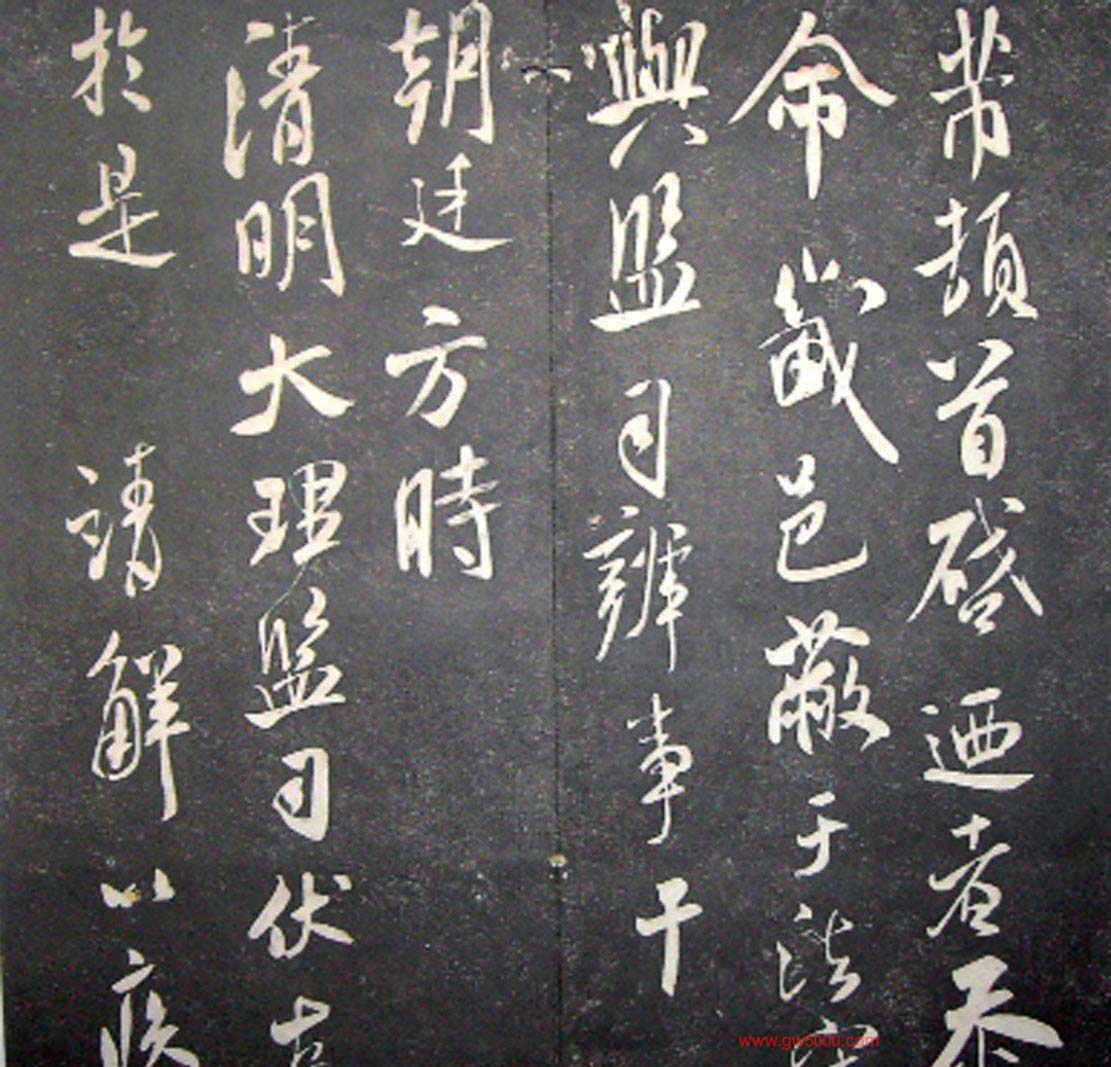 芾頓首啓 迺者忝
命 畿邑蔽于
與監司辨事干
朝廷方時
清明大理監司伏
於是 請解以疾
www.gw5000.com